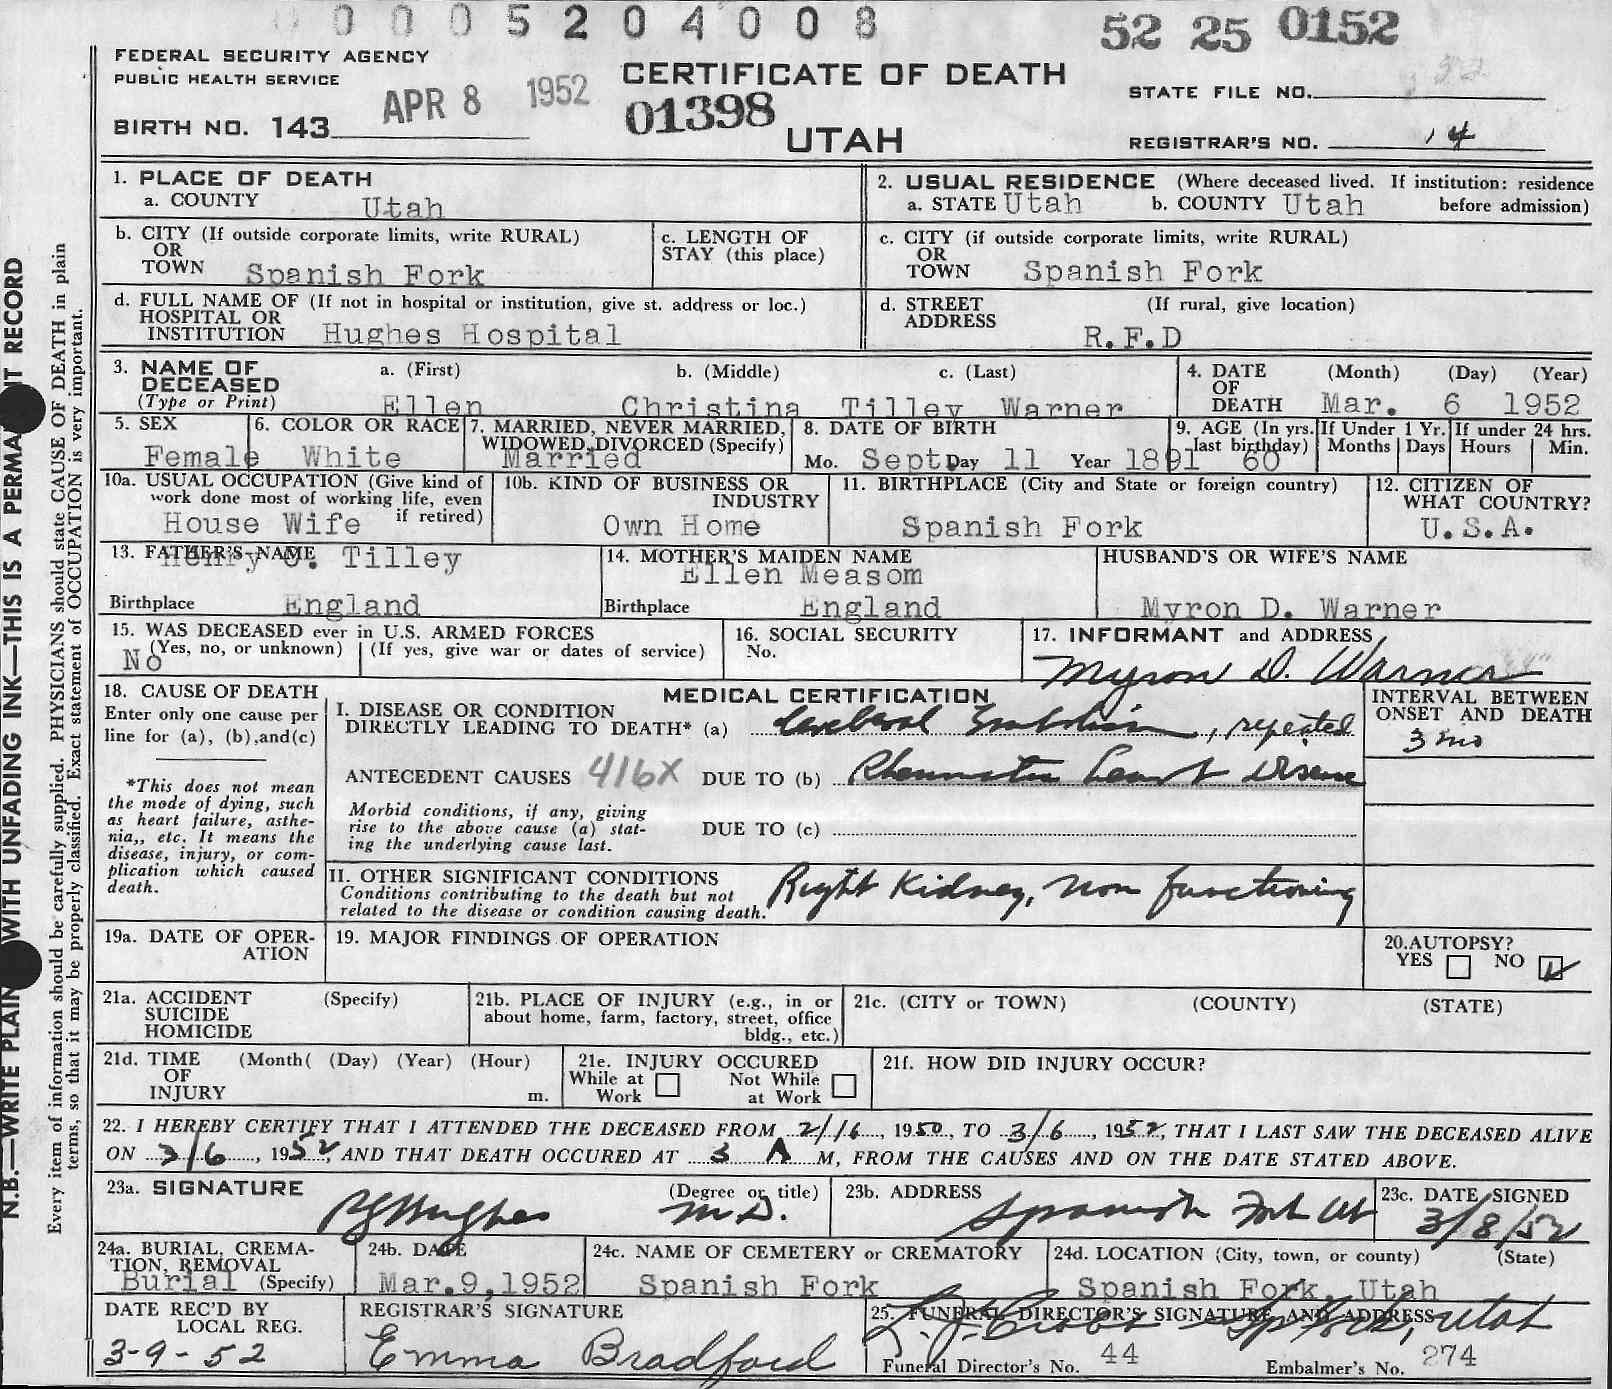 0 0 0 5 2 0 4 0 0 8 52 25 0152
FEDERAL SECURITY AGENCY
PUBLIC HEALTH SERVICE
APR 8 1952
BIRTH NO. 143
CERTIFICATE OF DEATH
01398
UTAH
STATE FILE NO.
REGISTRAR'S NO. 14
1. PLACE OF DEATH
a. COUNTY Utah
2. USUAL RESIDENCE (Where deceased lived. If institution: residence
a. STATE Utah b. COUNTY Utah before admission)
b. CITY (If outside corporate limits, write RURAL)
OR
TOWN Spanish Fork
c. LENGTH OF
STAY (this place)
c. CITY (if outside corporate limits, write RURAL)
OR
TOWN Spanish Fork
d. FULL NAME OF (If not in hospital or institution, give st. address or loc.)
HOSPITAL OR
INSTITUTION Hughes Hospital
d. STREET (If rural, give location)
ADDRESS
R.F.D
3. NAME OF a. (First) b. (Middle) c. (Last)
DECEASED
(Type or Print) Ellen Christina Tilley Warner
4. DATE (Month) (Day) (Year)
OF
DEATH Mar. 6 1952
5. SEX
Female
6. COLOR OR RACE
White
7. MARRIED, NEVER MARRIED,
WIDOWED, DIVORCED (Specify)
Married
8. DATE OF BIRTH
Mo. Sept. Day 11 Year 1891
9. AGE (In yrs.
last birthday)
60
If Under 1 Yr.
Months Days
If under 24 hrs.
Hours Min.
10a. USUAL OCCUPATION (Give kind of
work done most of working life, even
House Wife if retired)
10b. KIND OF BUSINESS OR
INDUSTRY
Own Home
11. BIRTHPLACE (City and State or foreign country)
Spanish Fork
12. CITIZEN OF
WHAT COUNTRY?
U.S.A.
13. FATHER'S NAME
Henry J. Tilley
Birthplace England
14. MOTHER'S MAIDEN NAME
Ellen Measom
Birthplace England
HUSBAND'S OR WIFE'S NAME
Myron D. Warner
15. WAS DECEASED ever in U.S. ARMED FORCES
(Yes, no, or unknown) (If yes, give war or dates of service)
No
16. SOCIAL SECURITY
No.
17. INFORMANT and ADDRESS
Myron D. Warner
18. CAUSE OF DEATH
Enter only one cause per
line for (a), (b), and (c)
*This does not mean
the mode of dying, such
as heart failure, asthe-
nia,, etc. It means the
disease, injury, or com-
plication which caused
death.
MEDICAL CERTIFICATION
I. DISEASE OR CONDITION
DIRECTLY LEADING TO DEATH* (a) Cerebral Embolism, repeated
INTERVAL BETWEEN
ONSET AND DEATH
3 mo
ANTECEDENT CAUSES 416X DUE TO (b) Rheumatic heart Disease
Morbid conditions, if any, giving
rise to the above cause (a) stat-
ing the underlying cause last.
DUE TO (c)
II. OTHER SIGNIFICANT CONDITIONS
Conditions contributing to the death but not
related to the disease or condition causing death.
Right Kidney, non functioning
19a. DATE OF OPER-
ATION
19. MAJOR FINDINGS OF OPERATION
20. AUTOPSY?
YES NO
21a. ACCIDENT (Specify)
SUICIDE
HOMICIDE
21b. PLACE OF INJURY (e.g., in or
about home, farm, factory, street, office
bldg., etc.)
21c. (CITY or TOWN) (COUNTY) (STATE)
21d. TIME (Month( (Day) (Year) (Hour)
OF
INJURY m.
21e. INJURY OCCURED
While at Work Not While at Work
21f. HOW DID INJURY OCCUR?
22. I HEREBY CERTIFY THAT I ATTENDED THE DECEASED FROM 2/16, 1950, TO 3/6, 1952, THAT I LAST SAW THE DECEASED ALIVE
ON 3/6, 1952, AND THAT DEATH OCCURED AT 3 A M, FROM THE CAUSES AND ON THE DATE STATED ABOVE.
23a. SIGNATURE (Degree or title)
Hughes M.D.
23b. ADDRESS
Spanish Fork Ut
23c. DATE SIGNED
3/8/52
24a. BURIAL, CREMA-
TION, REMOVAL
Burial (Specify)
24b. DATE
Mar.9,1952
24c. NAME OF CEMETERY or CREMATORY
Spanish Fork
24d. LOCATION (City, town, or county) (State)
Spanish Fork, Utah
DATE REC'D BY
LOCAL REG.
3-9-52
REGISTRAR'S SIGNATURE
Emma Bradford
25. FUNERAL DIRECTOR'S SIGNATURE AND ADDRESS
Sp Fork, Utah
Funeral Director's No. 44 Embalmer's No. 274
N.B.—WRITE PLAIN WITH UNFADING INK—THIS IS A PERMA T RECORD
Every item of information should be carefully supplied. PHYSICIANS should state CAUSE OF DEATH in plain
terms, so that it may be properly classified. Exact statement of OCCUPATION is very important.